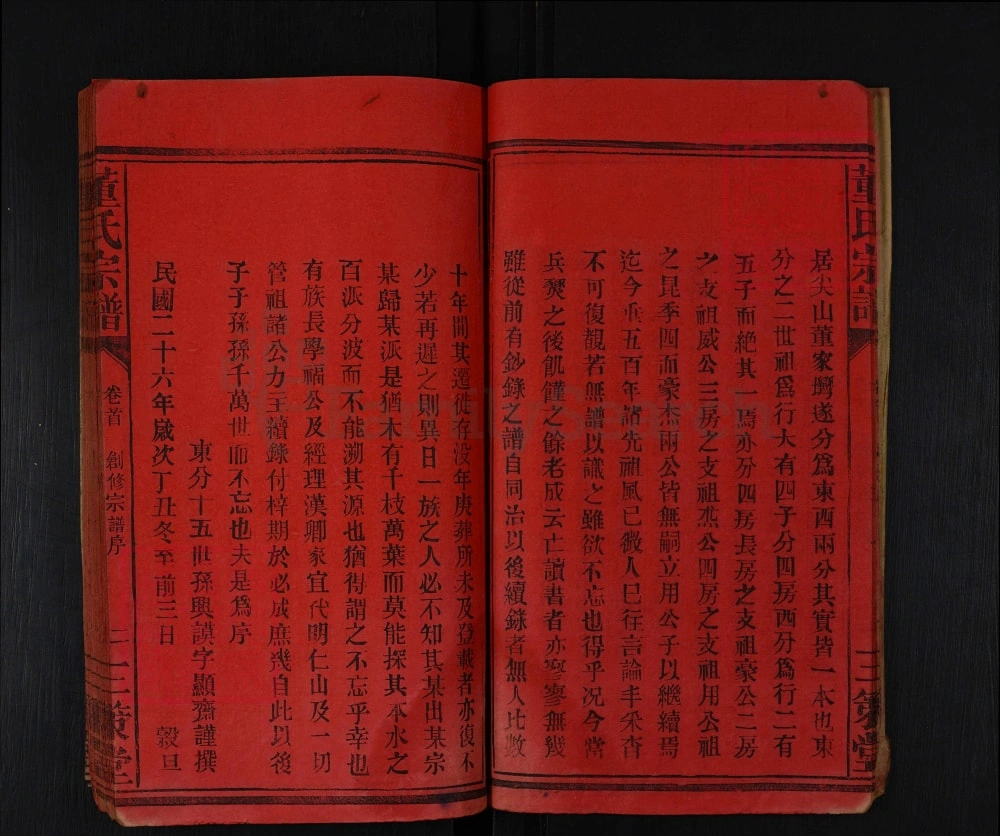 董氏宗譜
三策堂
居尖山董家壪遂分爲東西兩分其實皆一本也東
分之二世祖爲行大有四子分四房西分爲行二有
五子而絶其一焉亦分四房長房之支祖豪公二房
之支祖威公三房之支祖杰公四房之支祖用公祖
之昆季四而豪杰兩公皆無嗣立用公子以繼續焉
迄今垂五百年諸先祖風已微人已往言論丰采杳
不可復覩若無譜以識之雖欲不忘也得乎况今當
兵燹之後飢饉之餘老成云亡讀書者亦寥寥無幾
雖從前有鈔錄之譜自同治以後續錄者無人比數
十年間其遷徙存没年庚葬所未及登載者亦復不
少若再遲之則異日一族之人必不知其某出某宗
某歸某派是猶木有千枝萬葉而莫能探其本水之
百派分波而不能溯其源也猶得謂之不忘乎幸也
有族長學福公及經理漢卿家宜代明仁山及一切
管祖諸公力主續錄付梓期於必成庶幾自此以後
子子孫孫千萬世而不忘也夫是爲序
東分十五世孫興謨字顯齋謹撰
民國二十六年歲次丁丑冬至前三日 穀旦
董氏宗譜
卷首 創修宗譜序 二
三策堂